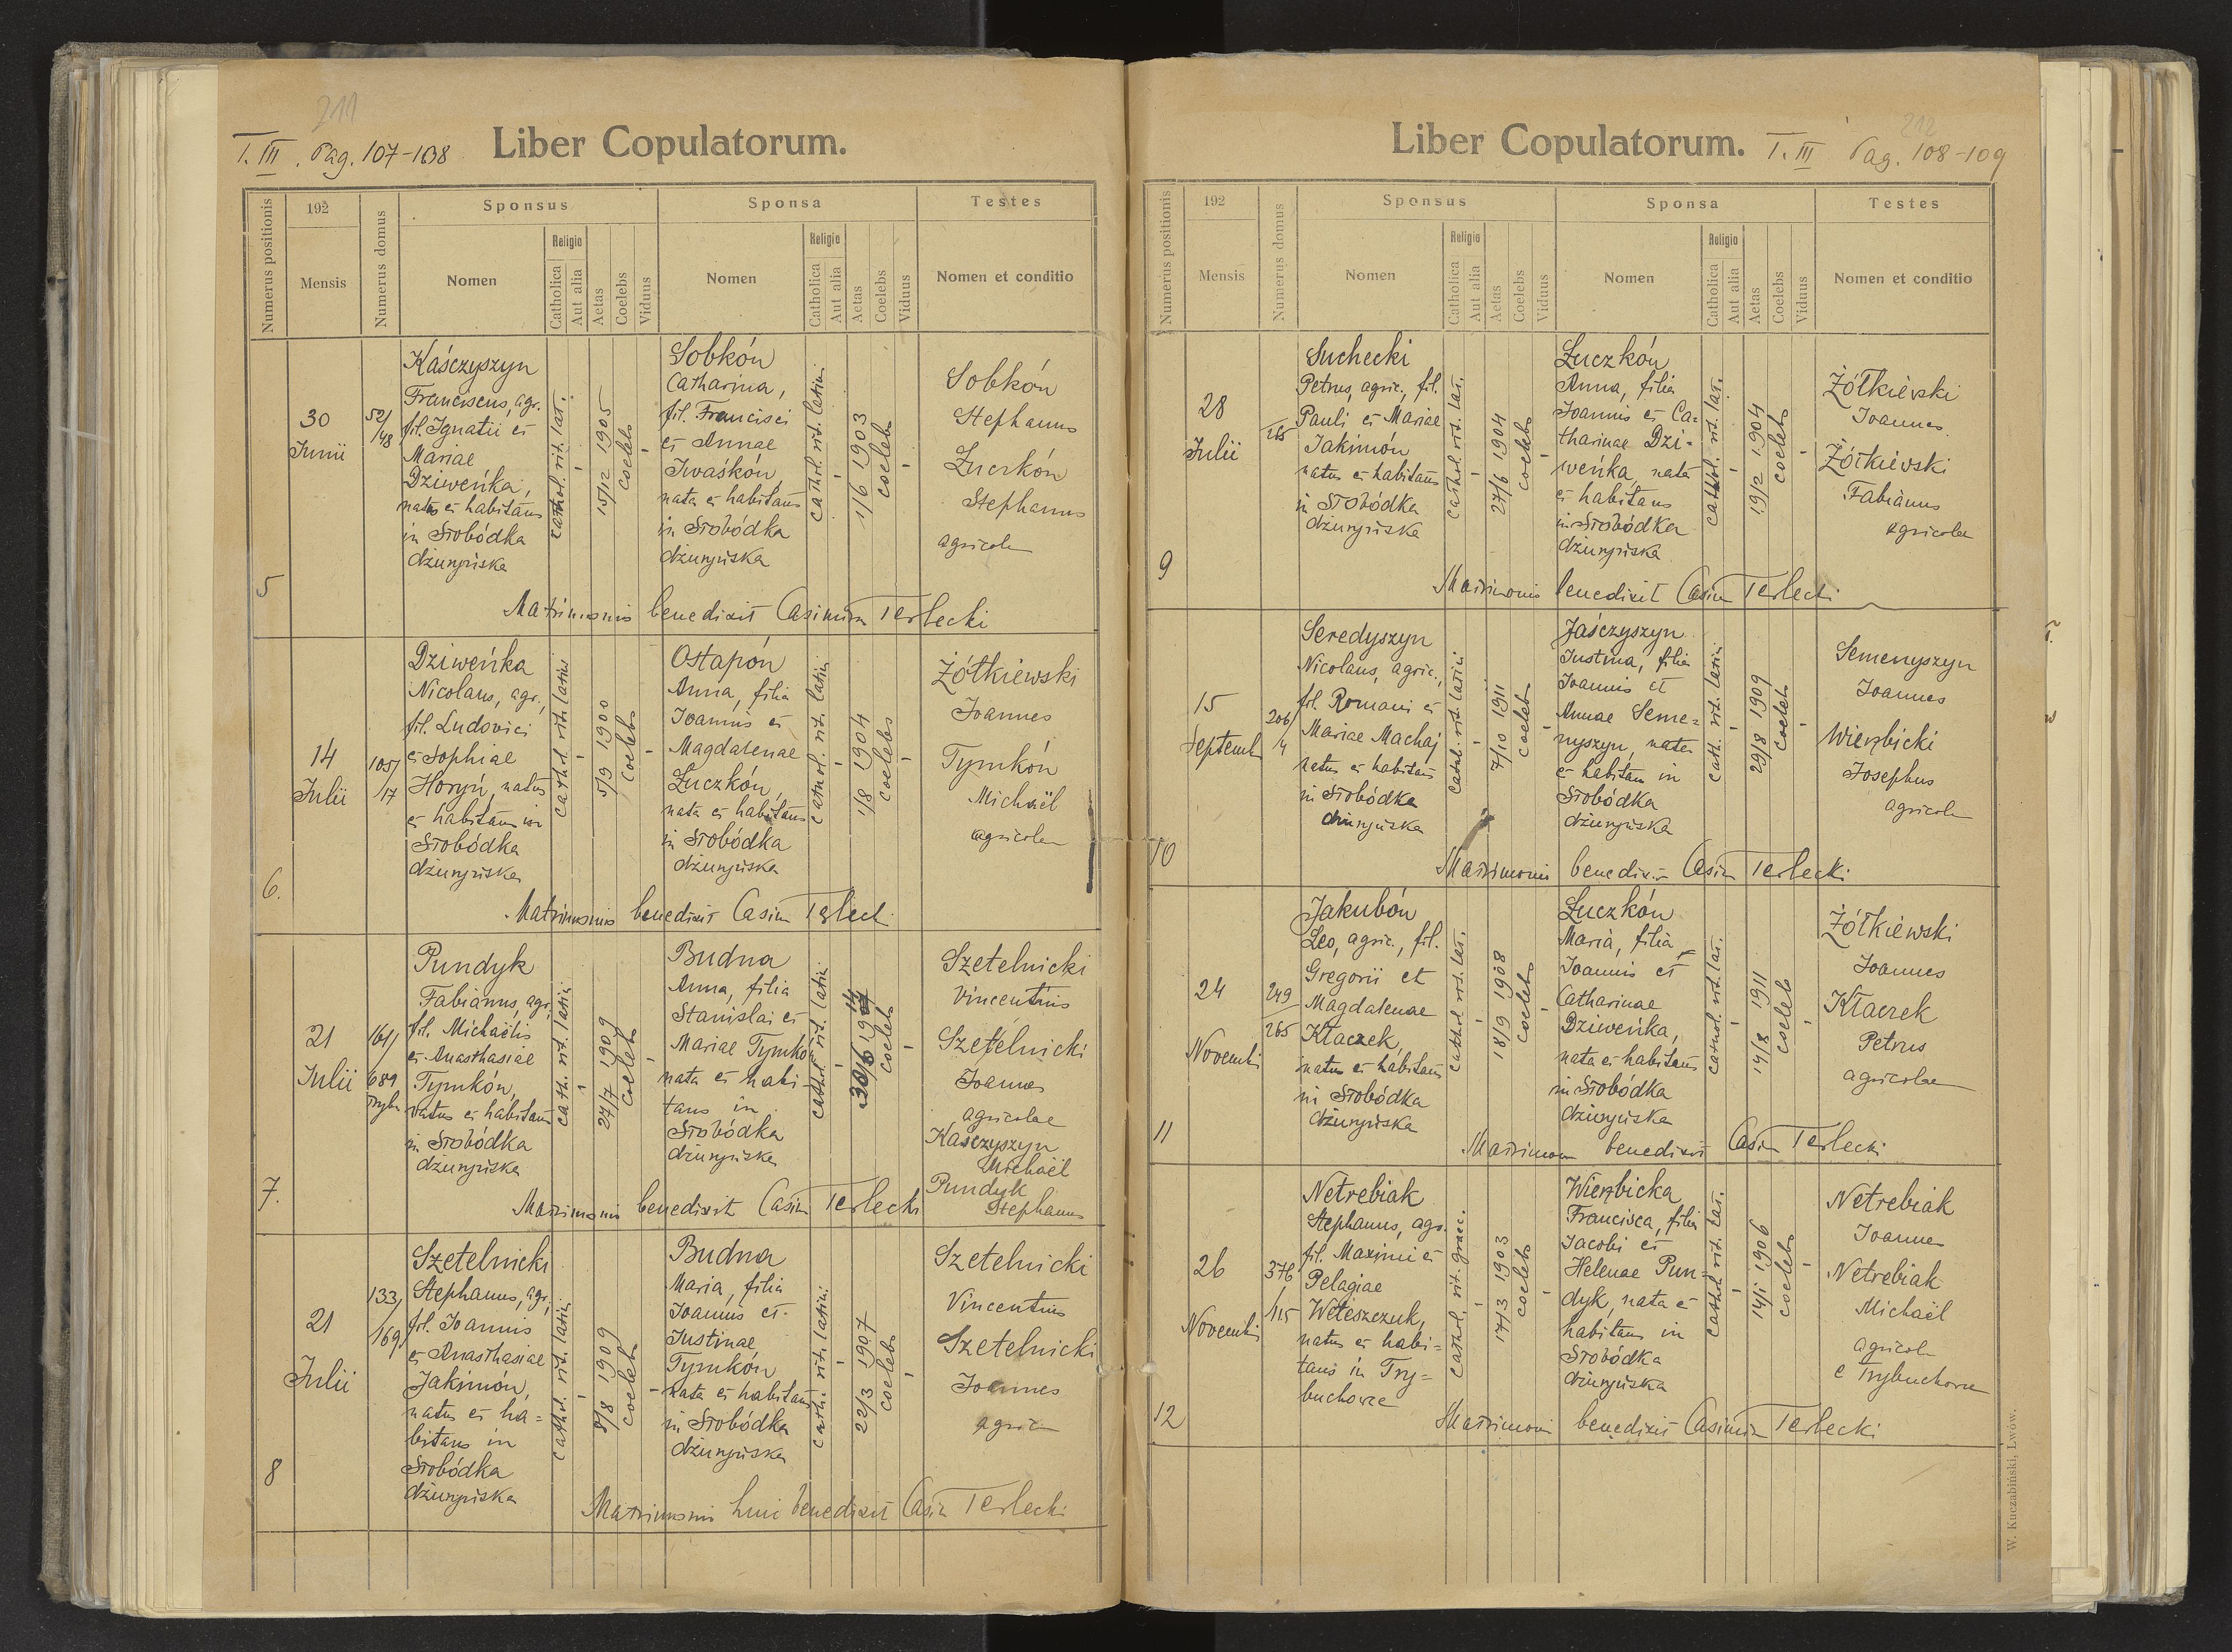 211
T. III. Pag. 107-108
Liber Copulatorum.
Numerus positionis
192
Mensis
Numerus domus
Sponsus
Nomen
Religio
Catholica
Aut alia
Aetas
Coelebs
Viduus
Sponsa
Nomen
Religio
Catholica
Aut alia
Aetas
Coelebs
Viduus
Testes
Nomen et conditio
5
30
Junii
52/
148
Kaśczyszyn
Franciscus, agr.
fil. Ignatii et
Mariae
Dziweńka,
natus et habitans
in Słobódka
dżuryńska
cathol. rit. lat.
15/12 1905
coelebs
Sobków
Catharina,
fil. Francisci
et Annae
Iwaśków,
nata et habitans
in Słobódka
dżuryńska
cathol. rit. latini
1/6 1903
coelebs
Sobków
Stephanus
Łuczków
Stephanus
agricolae
Matrimonio benedixit Casimir Terlecki
6.
14
Julii
105/
/17
Dziweńka
Nicolaus, agr.,
fil. Ludovici
et Sophiae
Horyń, natus
et habitans in
Słobódka
dżuryńska
cathol. rit. latini
5/9 1900
coelebs
Ostapów
Anna, filia
Joannis et
Magdalenae
Łuczków,
nata et habitans
in Słobódka
dżuryńska
cathol. rit. latini
1/8 1904
coelebs
Żółkiewski
Joannes
Tymków
Michaël
agricolae
Matrimonio benedixit Casim Terlecki
7.
21
Julii
161/
689
Tryb.
Pundyk
Fabianus, agr.
fil. Michaëlis
et Anasthasiae
Tymków,
natus et habitans
in Słobódka
dżuryńska
cath. rit. latini
27/7 1909
coelebs
Budna
Anna, filia
Stanislai et
Mariae Tymków
nata et habi-
tans in
Słobódka
dżuryńska
cathol. rit. latini
30/6 1914
coelebs
Szetelnicki
Vincentius
Szetelnicki
Joannes
agricolae
Kaśczyszyn
Michaël
Pundyk
Stephanus
Matrimonio benedixit Casim Terlecki
8
21
Julii
133/
/169
Szetelnicki
Stephanus, agr.,
fil. Joannis
et Anasthasiae
Jakimów,
natus et ha=
bitans in
Słobódka
dżuryńska
cathol. rit. latini
8/8 1909
coelebs
Budna
Maria, filia
Joannis et
Justinae
Tymków
nata et habitans
in Słobódka
dżuryńska
cathi. rit. latini
22/3 1907
coelebs
Szetelnicki
Vincentius
Szetelnicki
Joannes
agric
Matrimonio huic benedixit Casim Terlecki
212
Liber Copulatorum.
T. III Pag. 108-109
Numerus positionis
192
Mensis
Numerus domus
Sponsus
Nomen
Religio
Catholica
Aut alia
Aetas
Coelebs
Viduus
Sponsa
Nomen
Religio
Catholica
Aut alia
Aetas
Coelebs
Viduus
Testes
Nomen et conditio
9
28
Julii
265
Suchecki
Petrus, agric., fil.
Pauli et Mariae
Jakimów
natus et habitans
in Słobódka
dżuryńska
cathol. rit. lat.
27/6 1904
coelebs
Łuczków
Anna, filia
Joannis et Ca=
tharinae Dzi=
weńka, nata
et habitans
in Słobódka
dżuryńska
cathol. rit. lat.
19/2 1904
coelebs
Żółkiewski
Joannes
Żółkiewski
Fabianus
agricolae
Matrimonio benedixit Casim Terlecki
10
15
Septemb
206/
/4
Seredyszyn
Nicolaus, agric.,
fil. Romani et
Mariae Machaj
natus et habitans
in Słobódka
dżuryńska
cathol. rit. latini
7/10 1911
coelebs
Jaśczyszyn
Justina, filia
Joannis et
Annae Seme=
nyszyn, nata
et habitans in
Słobódka
dżuryńska
cath. rit. latini
29/8 1909
coelebs
Semenyszyn
Joannes
Wierzbicki
Josephus
agricolae
Matrimonio benedixit Casim Terlecki
11
24
Novembr
249
265
Jakubów
Leo, agric., fil.
Gregorii et
Magdalenae
Kłaczek,
natus et habitans
in Słobódka
dżuryńska
cathol. rit. lat.
18/9 1908
coelebs
Łuczków
Maria, filia
Joannis et
Catharinae
Dziweńka,
nata et habitans
in Słobódka
dżuryńska
cathol. rit. lat.
14/8 1911
coelebs
Żółkiewski
Joannes
Kłaczek
Petrus
agricolae
Matrimon benedixit Casim Terlecki
12
26
Novembr
376
/115
Netrebiak
Stephanus, agr.
fil. Maximi et
Pelagiae
Weteszczuk,
natus et habi=
tans in Try=
buchowce
cathol. rit. graec.
17/3 1903
coelebs
Wierzbicka
Francisca, filia
Jacobi et
Helenae Pun=
dyk, nata et
habitans in
Słobódka
dżuryńska
cathol. rit. lat.
14/1 1906
coelebs
Netrebiak
Joannes
Netrebiak
Michaël
agricolae
e Trybuchowce
Matrimonio benedixit Casimir Terlecki
W. Kuczabiński, Lwów.